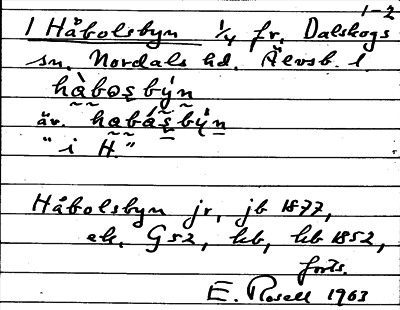 1-2
1 Håbolsbyn 1/4 fr. Dalskogs
sn. Nordals hd. Älvsb. l.
hàbo̱s̱ býn
äv. habás̱ býn
"i H."
Håbolsbyn jr, jb 1877,
ek, G52, kb, hb 1852,
forts.
E. Rosell 1963